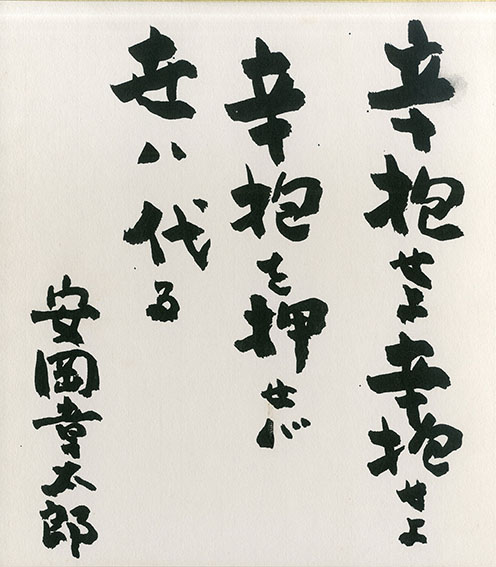 辛抱せよ辛抱せよ
辛抱を押せば
世ハ代る
安岡章太郎